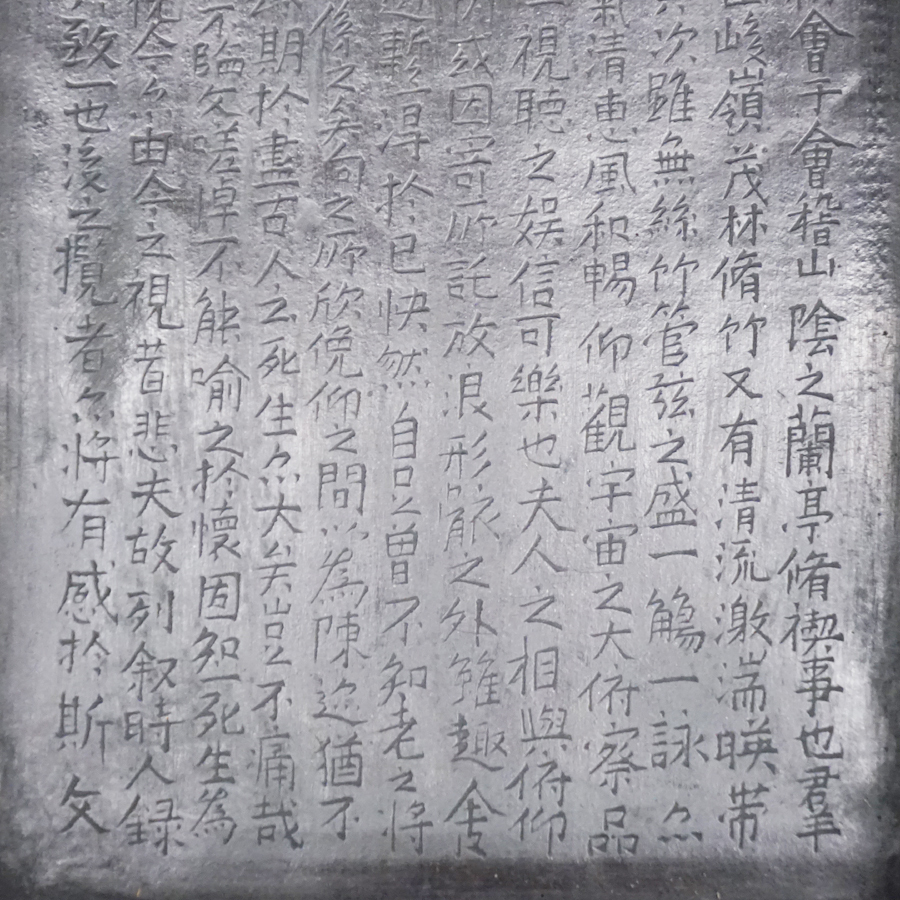 會于會稽山陰之蘭亭脩禊事也羣
峻嶺茂林脩竹又有清流激湍暎帶
次雖無絲竹管弦之盛一觴一詠亦
氣清惠風和暢仰觀宇宙之大俯察品
視聽之娛信可樂也夫人之相與俯仰
或因寄所託放浪形骸之外雖趣舍
暫得於己快然自足曾不知老之將
係之矣向之所欣俛仰之間以為陳迹猶不
期於盡古人云死生亦大矣豈不痛哉
不臨文嗟悼不能喻之於懷固知一死生為
今亦由今之視昔悲夫故列叙時人録
致一也後之攬者亦將有感於斯文